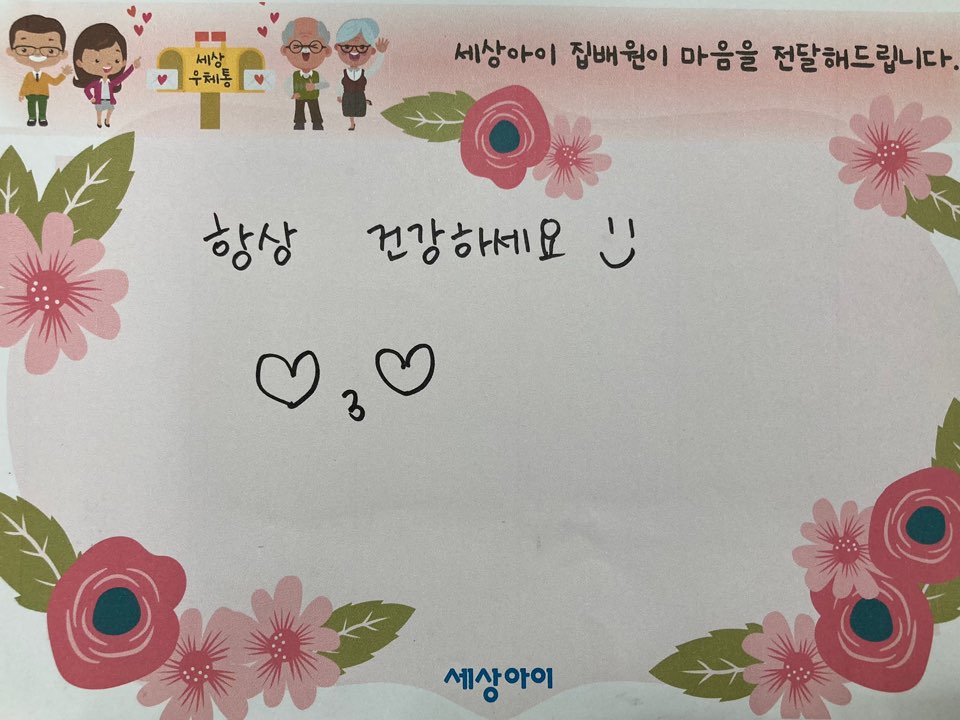 세상
우체통
세상아이 집배원이 마음을 전달해드립니다.
항상 건강하세요 :)
♡3♡
세상아이